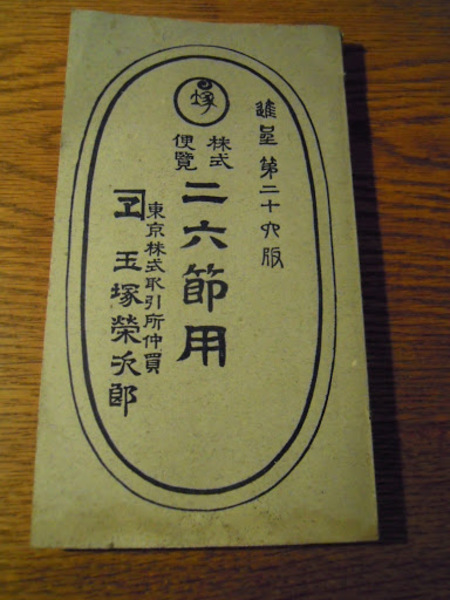 進呈 第二十六版
塚
株式
便覧
二六節用
東京株式取引所仲買
玉塚榮次郎